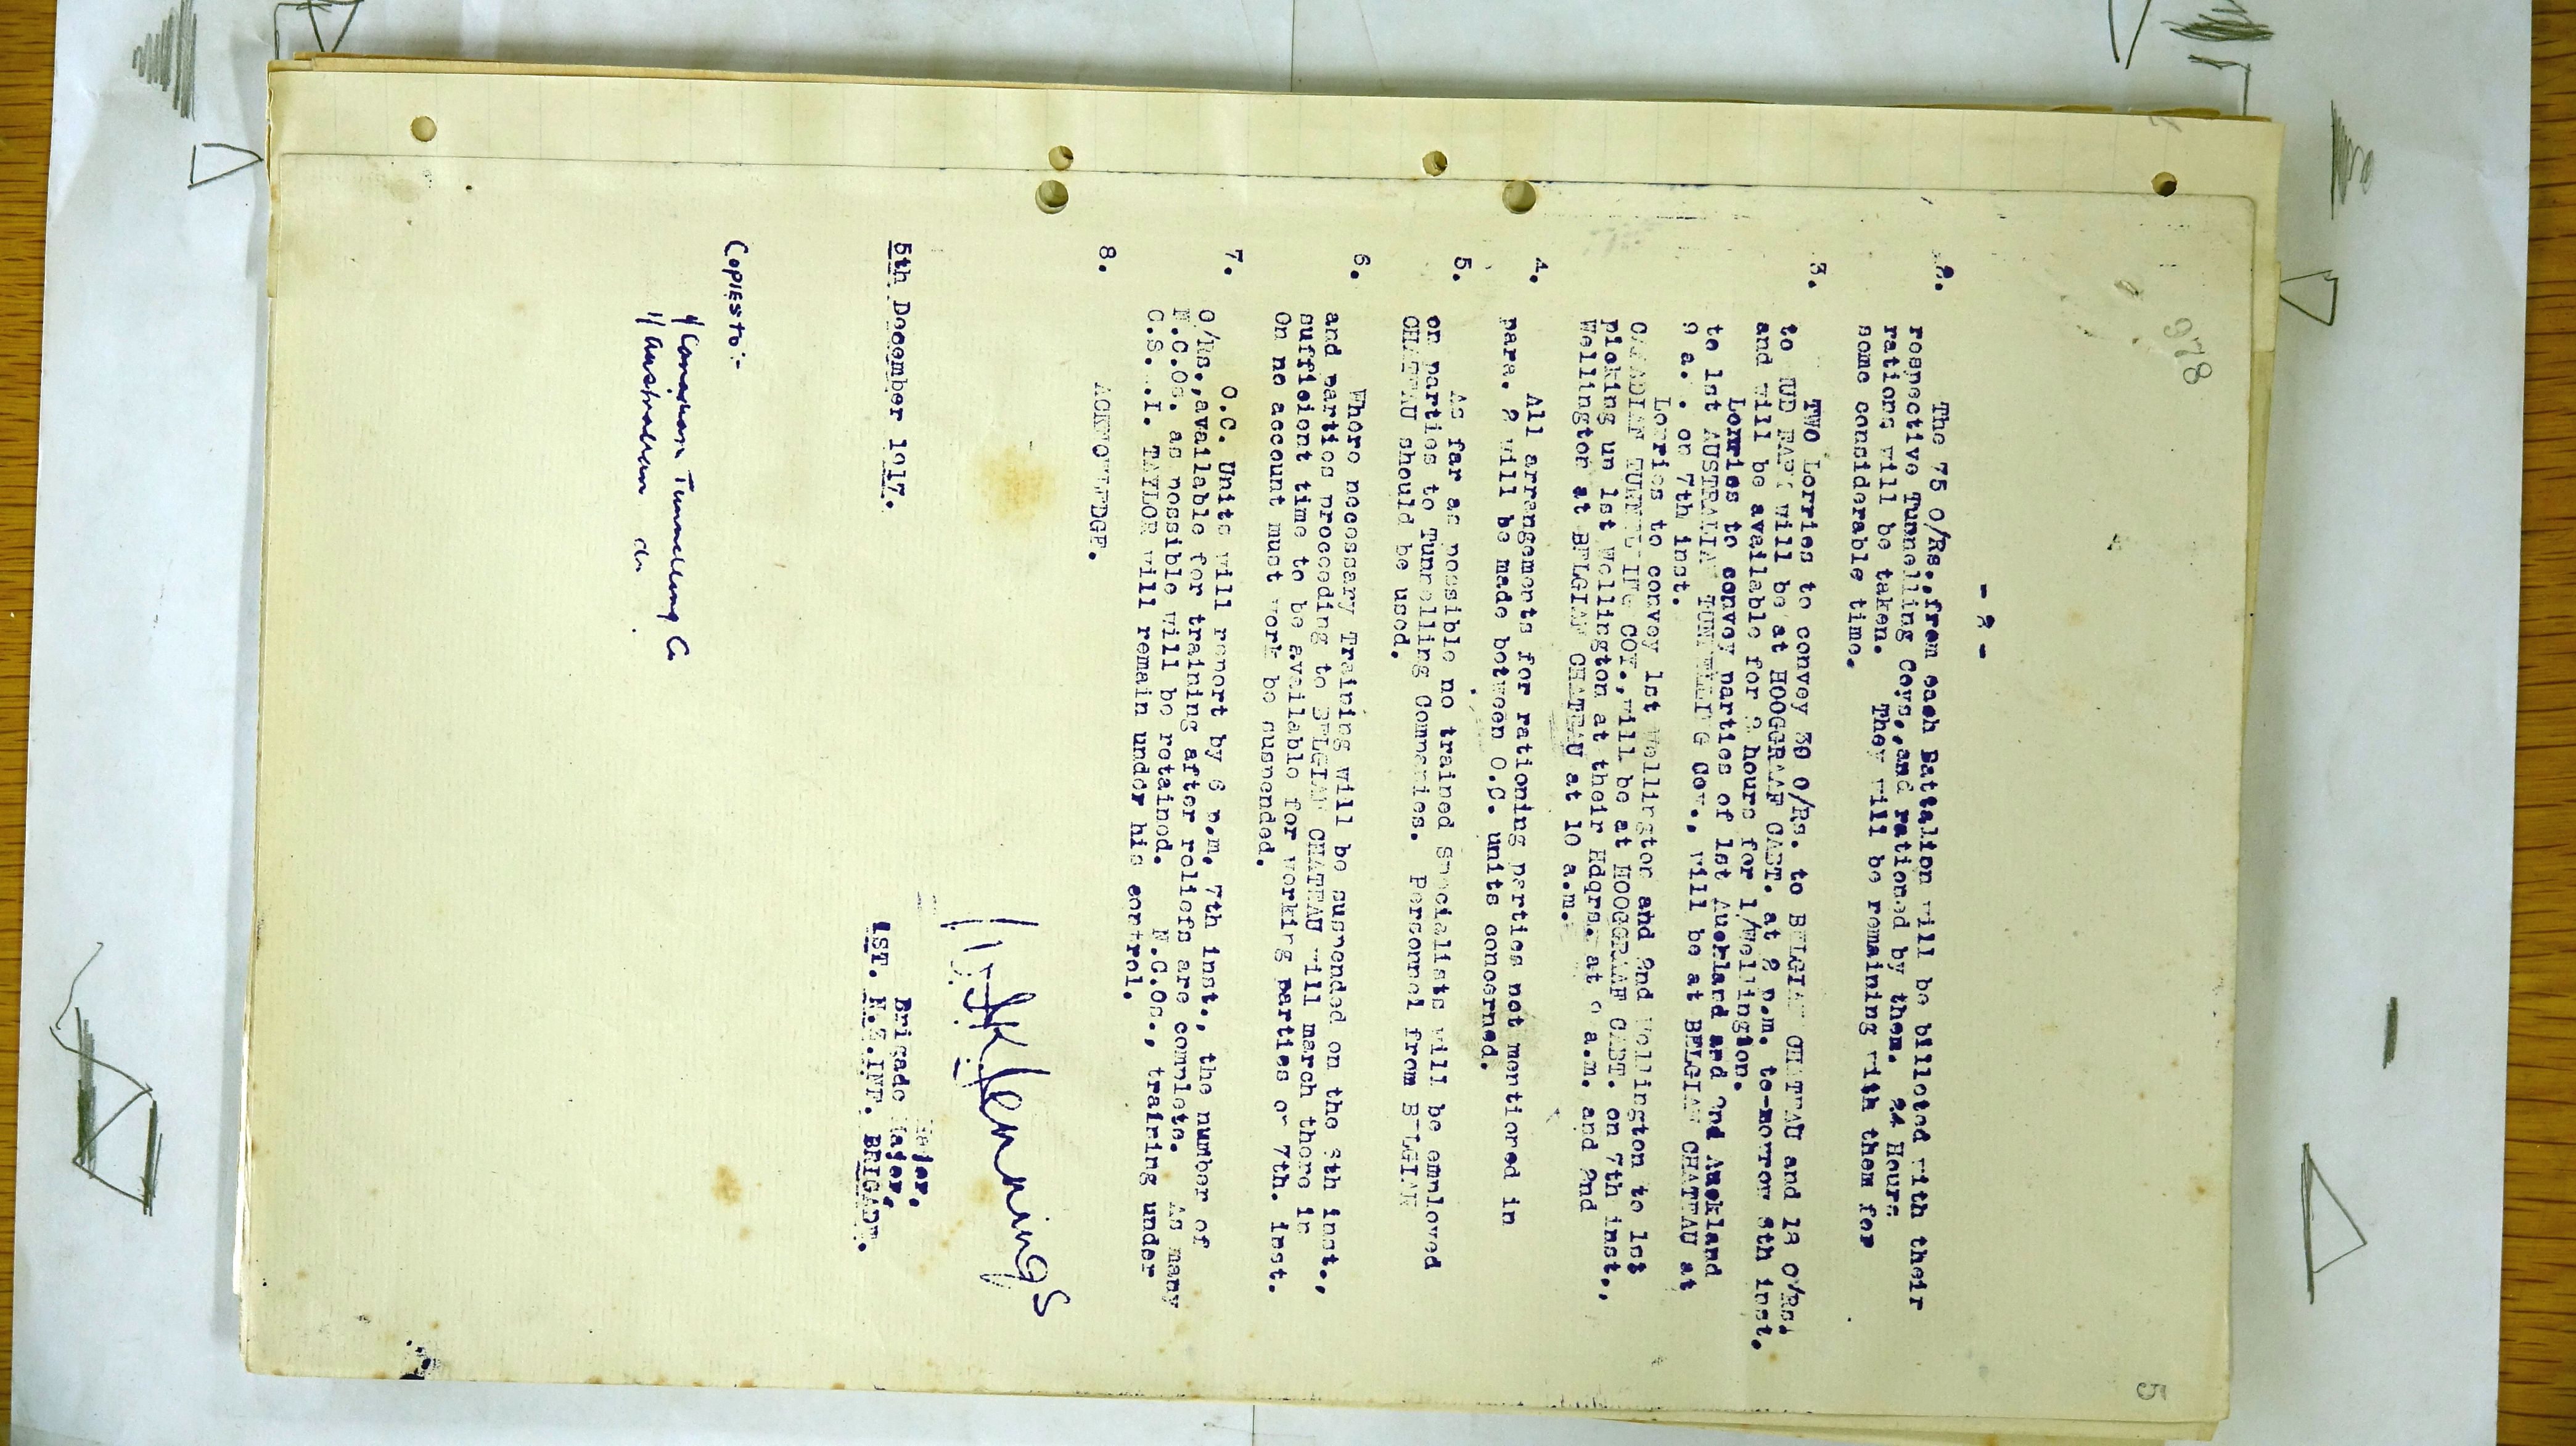 978
5
- 2 -
2. The 75 O/Rs.,from each Battalion will be billeted with their
respective Tunnelling Coys.,and rationed by them. 24 Hours
rations will be taken. They will be remaining with them for
some considerable time.
3. TWO Lorries to convey 30 O/Rs. to BELGIAN CHATEAU and 18 O/Rs.
to MUD FARM will be at HOOGGRAAF CABT. at 2 p.m. to-morrow 6th inst.
and will be available for 2 hours for 1/Wellington.
Lorries to convey parties of 1st Auckland and 2nd Auckland
to 1st AUSTRALIAN TUNNELLING Coy., will be at BELGIAN CHATEAU at
9 a.m. on 7th inst.
Lorries to convey 1st Wellington and 2nd Wellington to 1st
CANADIAN TUNNELLING COY.,will be at HOOGGRAAF CABT. on 7th inst.,
picking up 1st Wellington at their Hdqrs. at 9 a.m. and 2nd
Wellington at BELGIAN CHATEAU at 10 a.m.
4. All arrangements for rationing parties not mentioned in
para. 2 will be made between O.C. units concerned.
5. As far as possible no trained specialists will be employed
on parties to Tunnelling Companies. Personnel from BELGIAN
CHATEAU should be used.
6. Where necessary Training will be suspended on the 6th inst.,
and parties proceeding to BELGIAN CHATEAU will march there in
sufficient time to be available for working parties on 7th. inst.
On no account must work be suspended.
7. O.C. Units will report by 6 p.m. 7th inst., the number of
O/Rs.,available for training after reliefs are complete. As many
N.C.Os. as possible will be retained. N.C.Os., training under
C.S.M.I. TAYLOR will remain under his control.
8. ACKNOWLEDGE.
Jennings
Major.
Brigade Major,
5th December 1917. 1ST. N.Z.INF. BRIGADE.
Copies to:-
1/ Canadian Tunnelling Co
1/ Australian do.